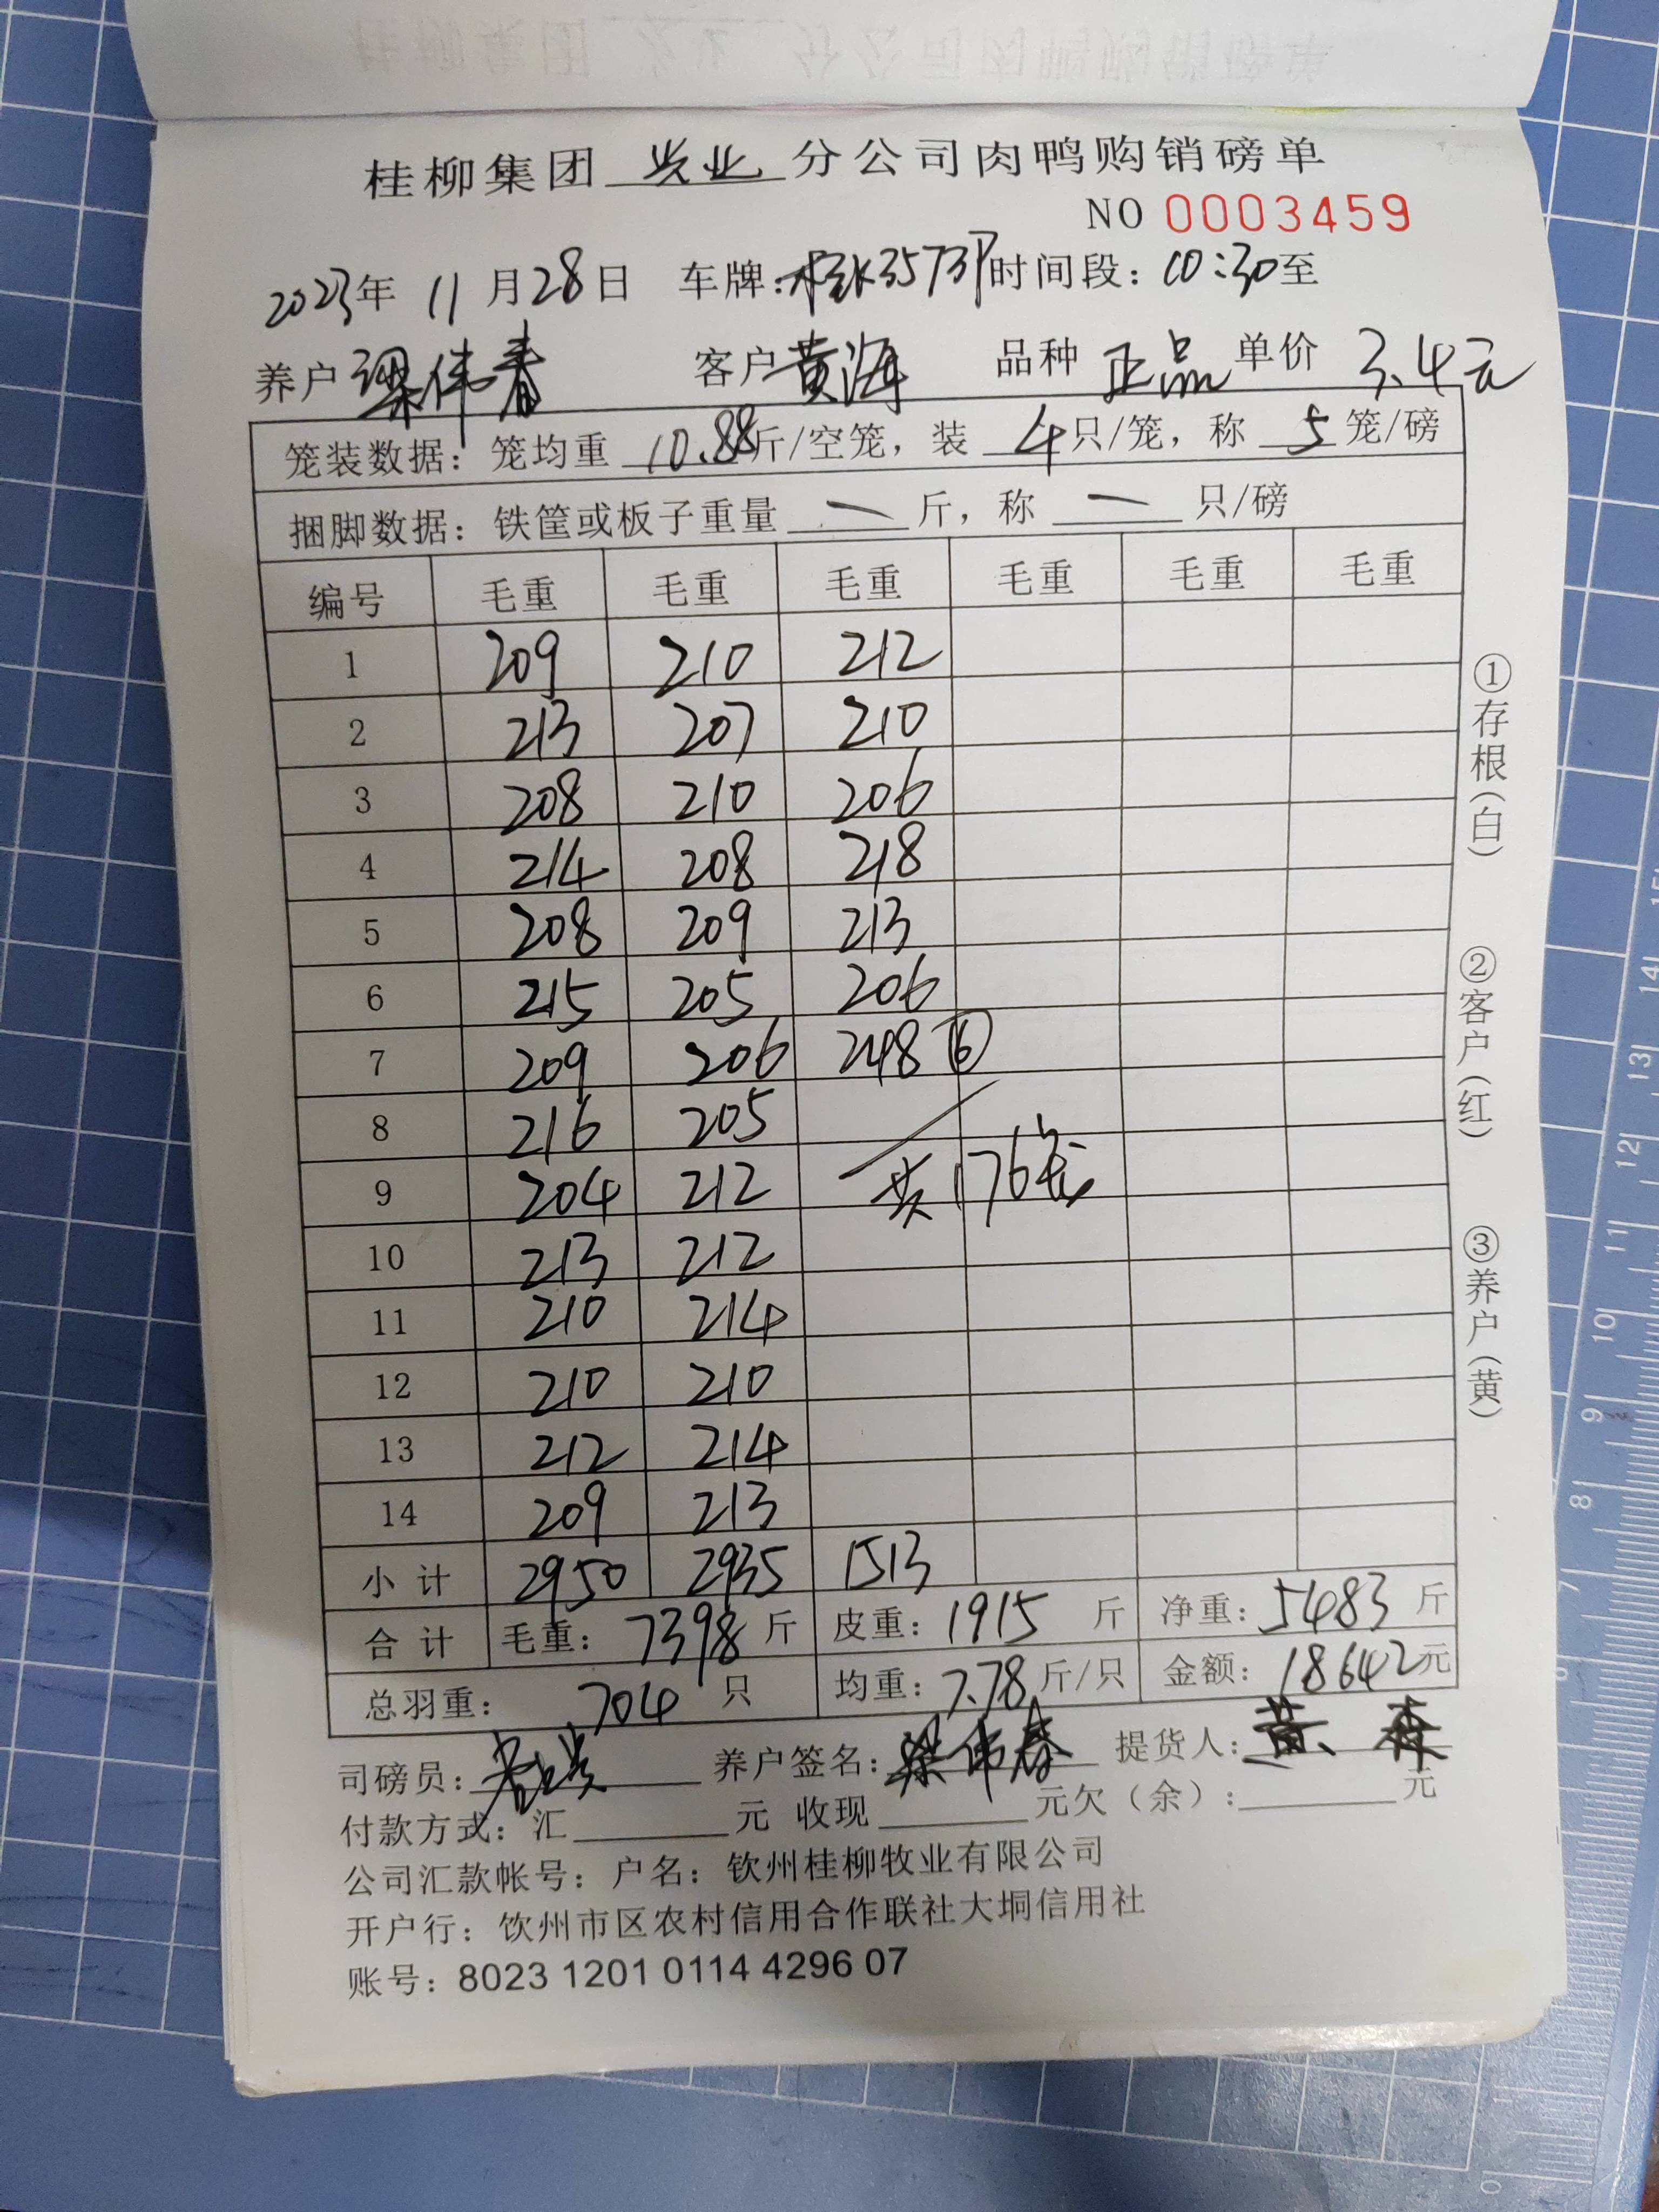 桂柳集团 兴业 分公司肉鸭购销磅单
NO 0003459
2023年 11 月 28 日 车牌: 时间段: 10:30 至
养户 梁伟春 客户 黄海 品种 正品 单价 3.4元
笼装数据: 笼均重 10.88 斤/空笼, 装 4 只/笼, 称 5 笼/磅
捆脚数据: 铁筐或板子重量 — 斤, 称 — 只/磅
编号 毛重 毛重 毛重 毛重 毛重 毛重
1 209 210 212
2 213 207 210
3 208 210 206
4 214 208 218
5 208 209 213
6 215 205 206
7 209 206 248 ⑥
8 216 205
9 204 212 共176笼
10 213 212
11 210 214
12 210 210
13 212 214
14 209 213
小计 2950 2935 1513
合计 毛重: 7398 斤 皮重: 1915 斤 净重: 5483 斤
总羽重: 704 只 均重: 7.78 斤/只 金额: 18642 元
司磅员: 养户签名: 梁伟春 提货人: 黄 森
付款方式: 汇 元 收现 元欠(余): 元
公司汇款帐号: 户名: 钦州桂柳牧业有限公司
开户行: 饮州市区农村信用合作联社大垌信用社
账号: 8023 1201 0114 4296 07
①存根(白) ②客户(红) ③养户(黄)
15
14
13
12
11
10
9
8
7
6
0